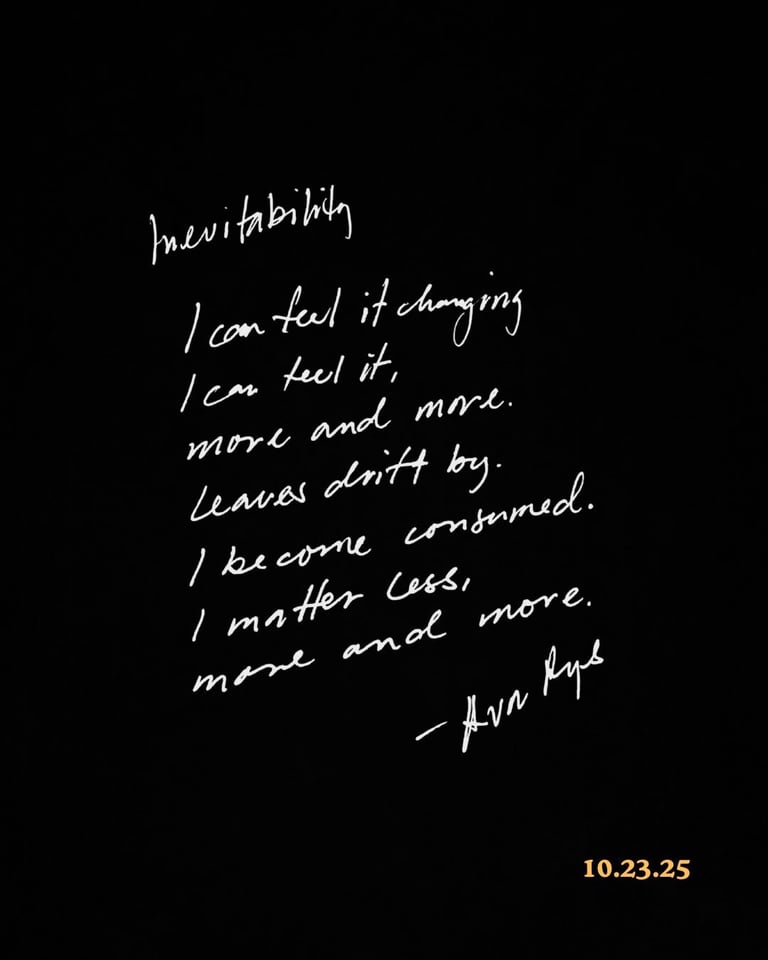 Inevitability
I can feel it changing
I can feel it,
more and more.
Leaves drift by.
I become consumed.
I matter less,
more and more.
– Ava
10.23.25